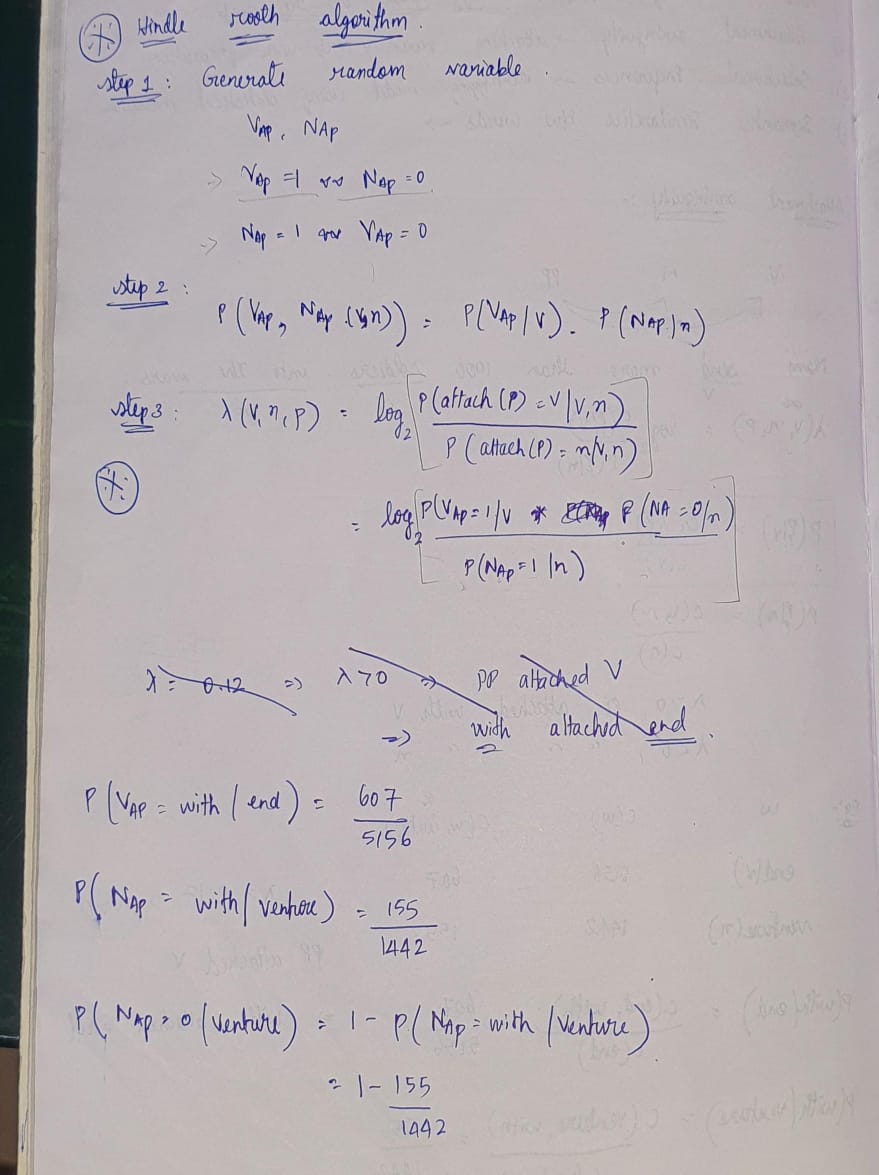 Hindle rooth algorithm.
step 1 : Generate random variable.
VAP, NAP
=> VAP = 1 NAP = 0
=> NAP = 1 VAP = 0
step 2 :
P(VAP, NAP (v,n)) = P(VAP/v). P(NAP/n)
step 3 : λ(v, n, p) = log2 [P(attach(P) = v/v,n)
P(attach(P) = n/v,n)]
= log2 [P(VAP = 1/v * P(NA = 0/n)
P(NAP = 1/n)]
λ = 0.12 => λ>0 => PP attached V
=> with attached end.
P(VAP = with/end) = 607
5156
P(NAP = with/venture) = 155
1442
P(NAP = 0/venture) = 1 - P(NAP = with/venture)
= 1 - 155
1442